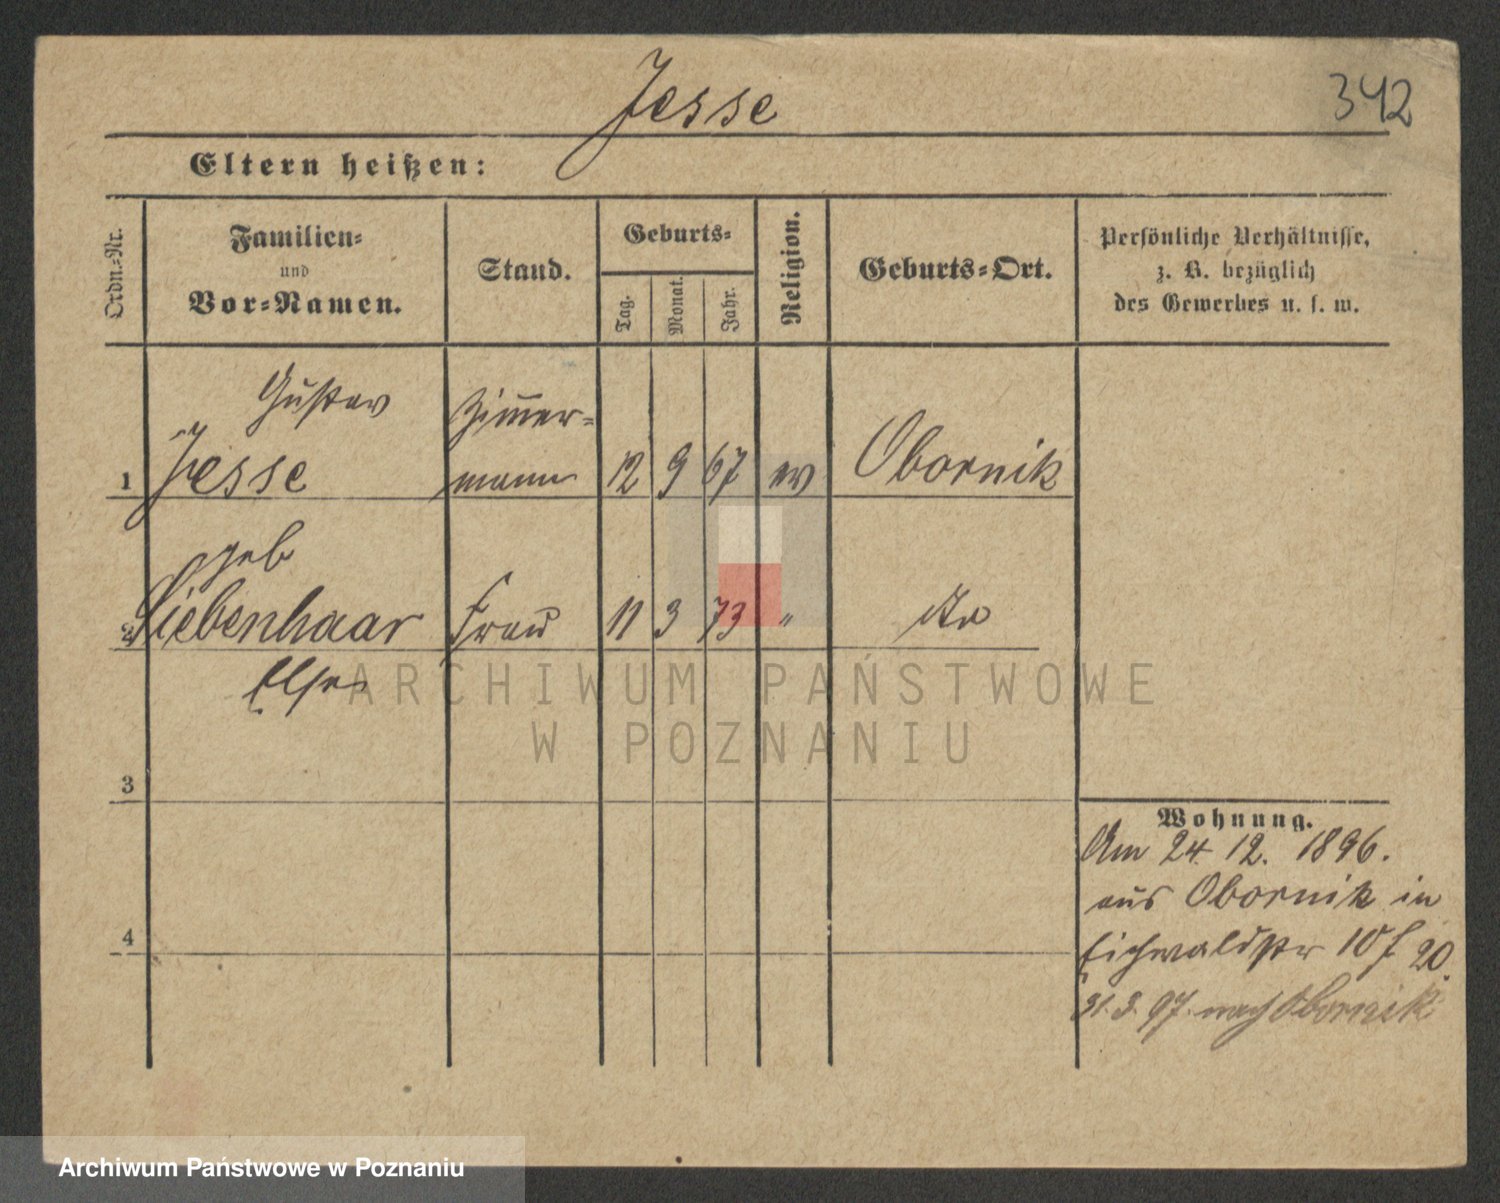 Jesse
342
Eltern heißen:
Ordn.-Nr.
Familien-
und
Vor-Namen.
Stand.
Geburts-
Tag.
Monat.
Jahr.
Religion.
Geburts-Ort.
Persönliche Verhältnisse,
z. B. bezüglich
des Gewerbes u. s. w.
Gustav
Zimmer-
1 Jesse mann 12 9 67 ev Obornik
geb
2 Liebenhaar Frau 11 3 73 " do
Else
ARCHIWUM PAŃSTWOWE
W POZNANIU
3
4
Wohnung.
Am 24. 12. 1896.
aus Obornik in
Eichwaldstr 10 f 20.
31. 3. 97. nach Obornik
Archiwum Państwowe w Poznaniu